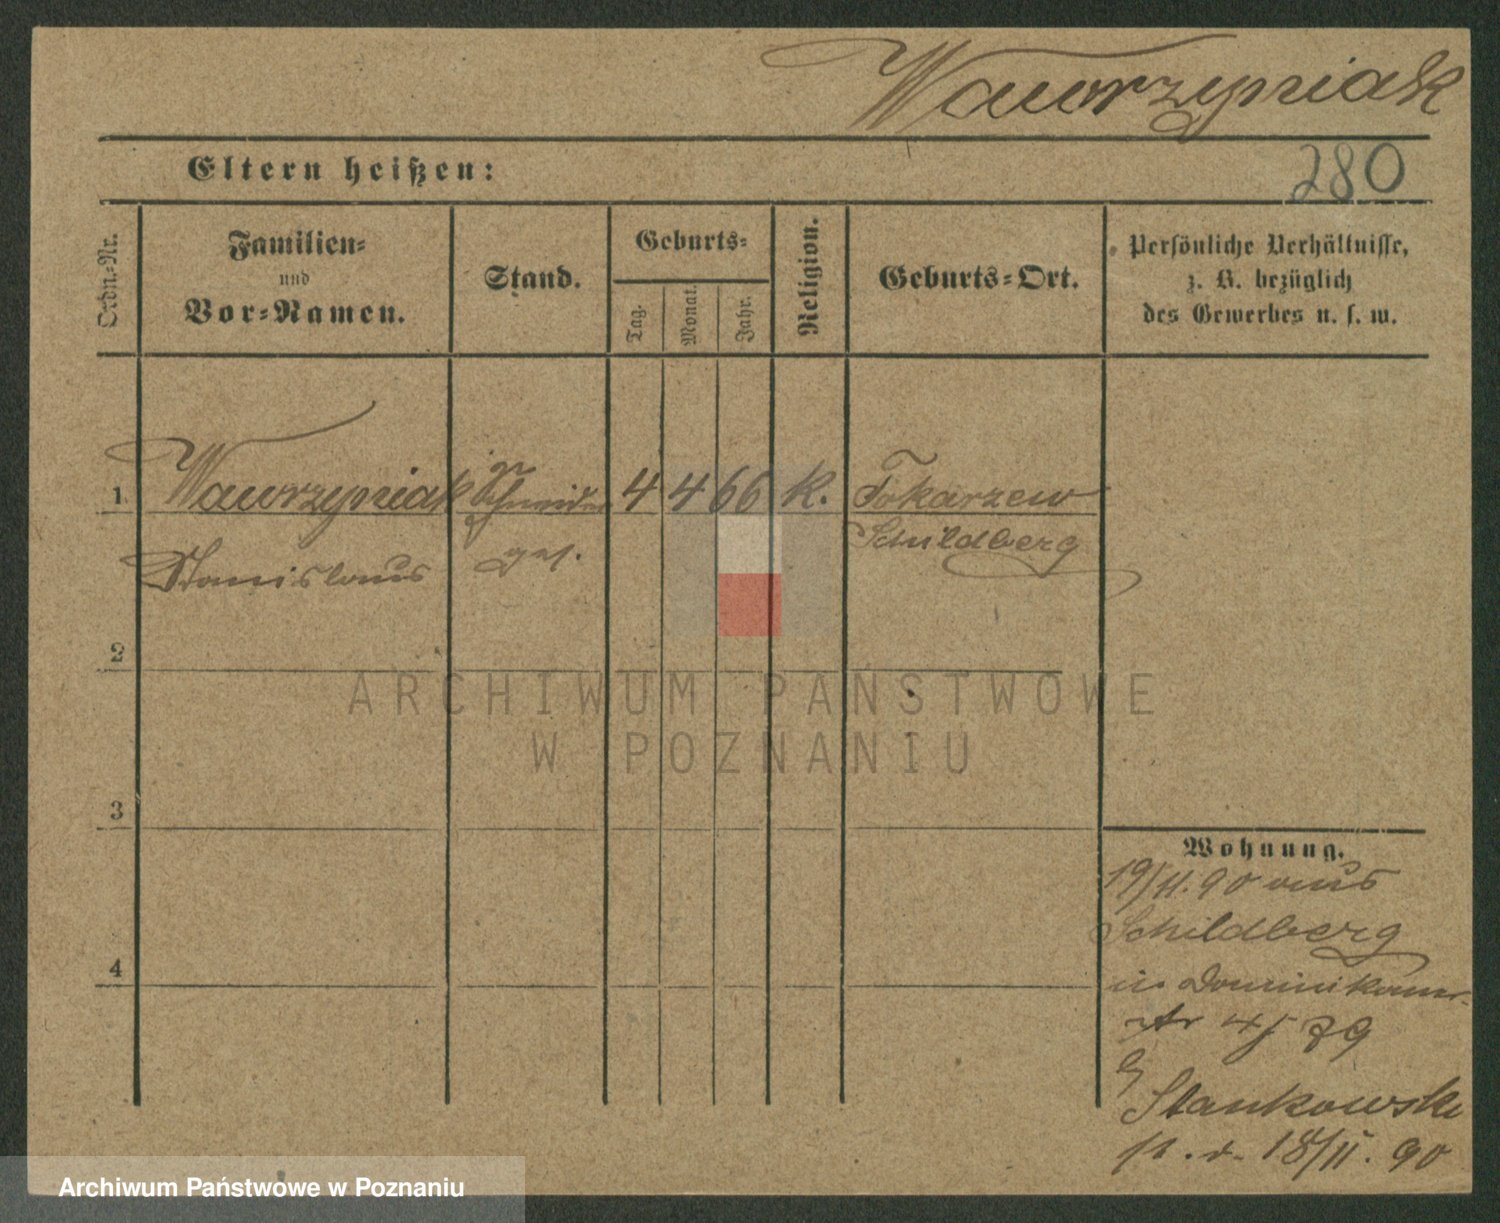 Wawrzyniak
Eltern heißen:
280
Ordn.=Nr.
Familien=
und
Vor=Namen.
Stand.
Geburts=
Tag.
Monat.
Jahr.
Religion.
Geburts=Ort.
Persönliche Verhältnisse,
z. B. bezüglich
des Gewerbes u. s. w.
1. Wawrzyniak Schneider 4 4 66 k. Tokarzew
Stanislaus ges. Schildberg
2
3
4
Wohnung.
19/11. 90 aus
Schildberg
in Dominikaner-
str 4
Stankowski
18/11. 90
ARCHIWUM PAŃSTWOWE
W POZNANIU
Archiwum Państwowe w Poznaniu